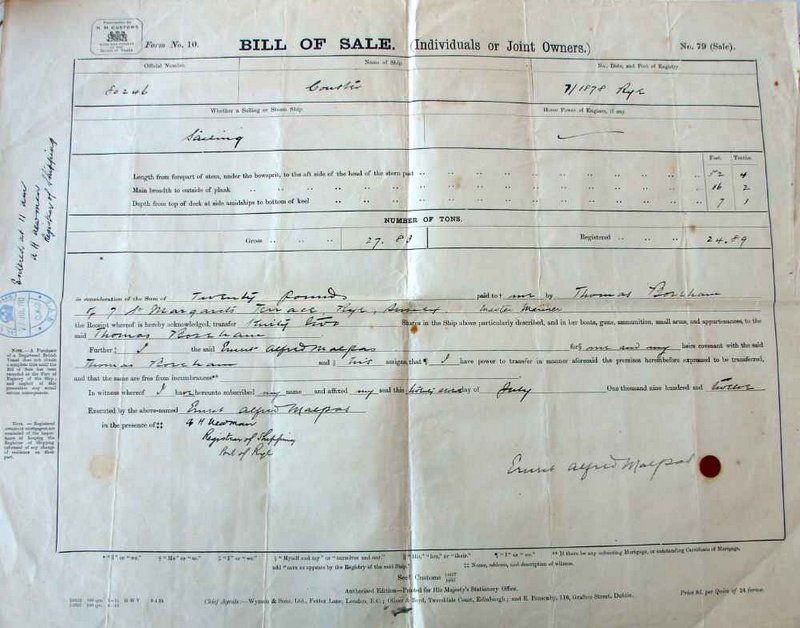 H. M. CUSTOMS
Form No. 10. BILL OF SALE. (Individuals or Joint Owners.) No. 79 (Sale).
Official Number. Name of Ship. No., Date, and Port of Registry.
80246 7/1878 Rye
Whether a Sailing or Steam Ship. Horse Power of Engines, if any.
Sailing
Feet. Tenths.
Length from forepart of stem, under the bowsprit, to the aft side of the head of the stern post 52 4
Main breadth to outside of plank 16 2
Depth from top of deck at side amidships to bottom of keel 7 1
NUMBER OF TONS.
Gross 27.83 Registered 24.89
Entered at 11 am
A H Newman
Registrar of Shipping
in consideration of the Sum of Twenty Pounds paid to me by Thomas Boreham
of 7 St Margarets Terrace, Rye, Sussex Master Mariner
the Receipt whereof is hereby acknowledged, transfer thirty two Shares in the Ship above particularly described, and in her boats, guns, ammunition, small arms, and appurtenances, to the
said Thomas Boreham
Further I the said Ernest Alfred Malpas for me and my heirs covenant with the said
Thomas Boreham and his assigns, that I have power to transfer in manner aforesaid the premises hereinbefore expressed to be transferred,
and that the same are free from incumbrances**
In witness whereof I have hereunto subscribed my name and affixed my seal this day of July One thousand nine hundred and twelve
Executed by the above-named Ernest Alfred Malpas
in the presence of‡‡ A H Newman
Registrar of Shipping
Port of Rye
Ernest Alfred Malpas
NOTE.—A Purchaser
of a Registered British
Vessel does not obtain
complete title until the
Bill of Sale has been
recorded at the Port of
Registry of the ship;
and neglect of this
precaution may entail
serious consequences.
NOTE.—Registered
Owners or Mortgagees are
reminded of the importance
of keeping the
Registrar of Shipping
informed of any change
of residence on their
part.
* "I" or "we." † "Me" or "us." ‡ "I" or "we." § "Myself and my" or "ourselves and our." ‖ "His," "her," or "their." ¶ "I" or "we." ** If there be any subsisting Mortgage, or outstanding Certificate of Mortgage,
add "save as appears by the Registry of the said Ship." ‡‡ Name, address, and description of witness.
Customs
Authorised Edition—Printed for His Majesty's Stationery Office.
Chief Agents:—Wyman & Sons, Ltd., Fetter Lane, London, E.C.; Oliver & Boyd, Tweeddale Court, Edinburgh; and E. Ponsonby, 116, Grafton Street, Dublin. Price 9d. per Quire of 24 forms.